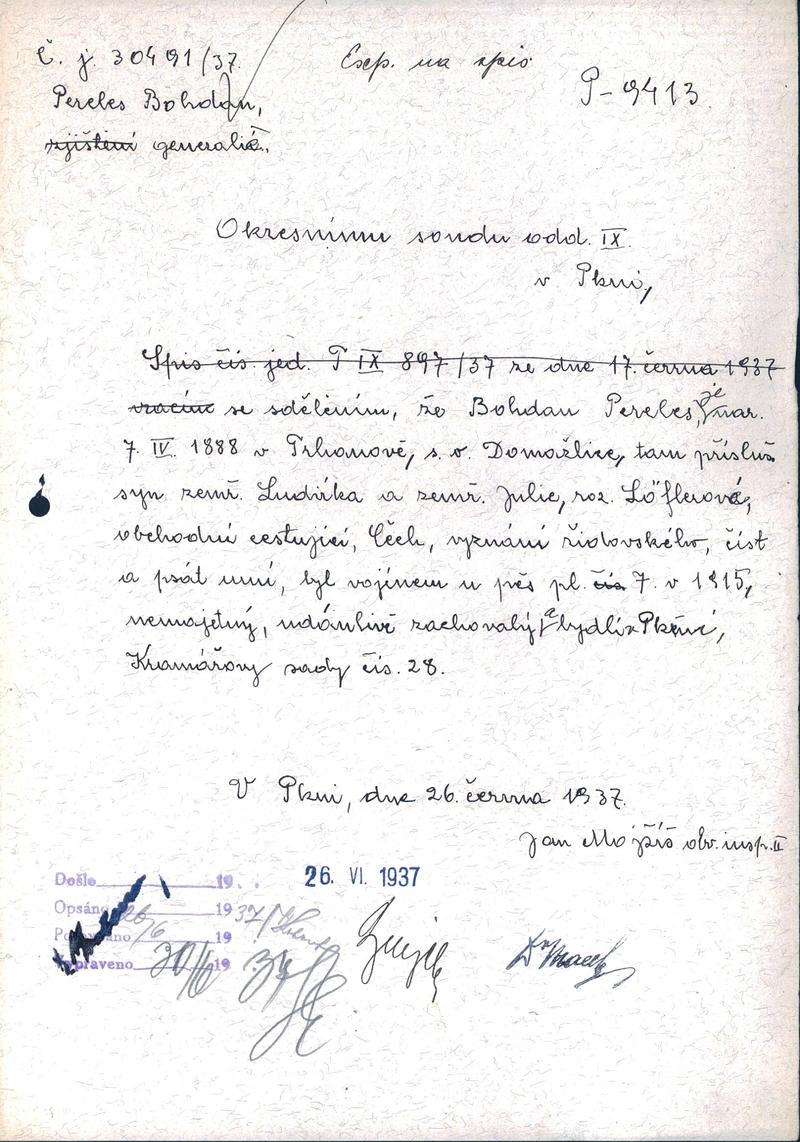 Č. j. 30491/37.
Exp. na spis
P-9413
Pereles Bohdan,
zjištění generalií.
Okresnímu soudu odd. IX.
v Plzni,
Spis čís. jed. T IX 897/37 ze dne 17. června 1937
vracím se sdělením, že Bohdan Pereles, je nar.
7. IV. 1888 v Trhanově, s. o. Domažlice, tam přísluš.
syn zemř. Ludvíka a zemř. Julie, roz. Löflerové,
obchodní cestující, Čech, vyznání židovského, číst
a psát umí, byl vojínem u pěš pl. čís. 7. v 1915,
nemajetný, udánlivě zachovalý a bydlí v Plzni,
Kramářovy sady čís. 28.
V Plzni, dne 26. června 1937.
Jan Mojžíš obv. insp. II
Došlo 19
26. VI. 1937
Opsáno 26/6 1937
19
Vypraveno 30/6 19 37
Dr Macek